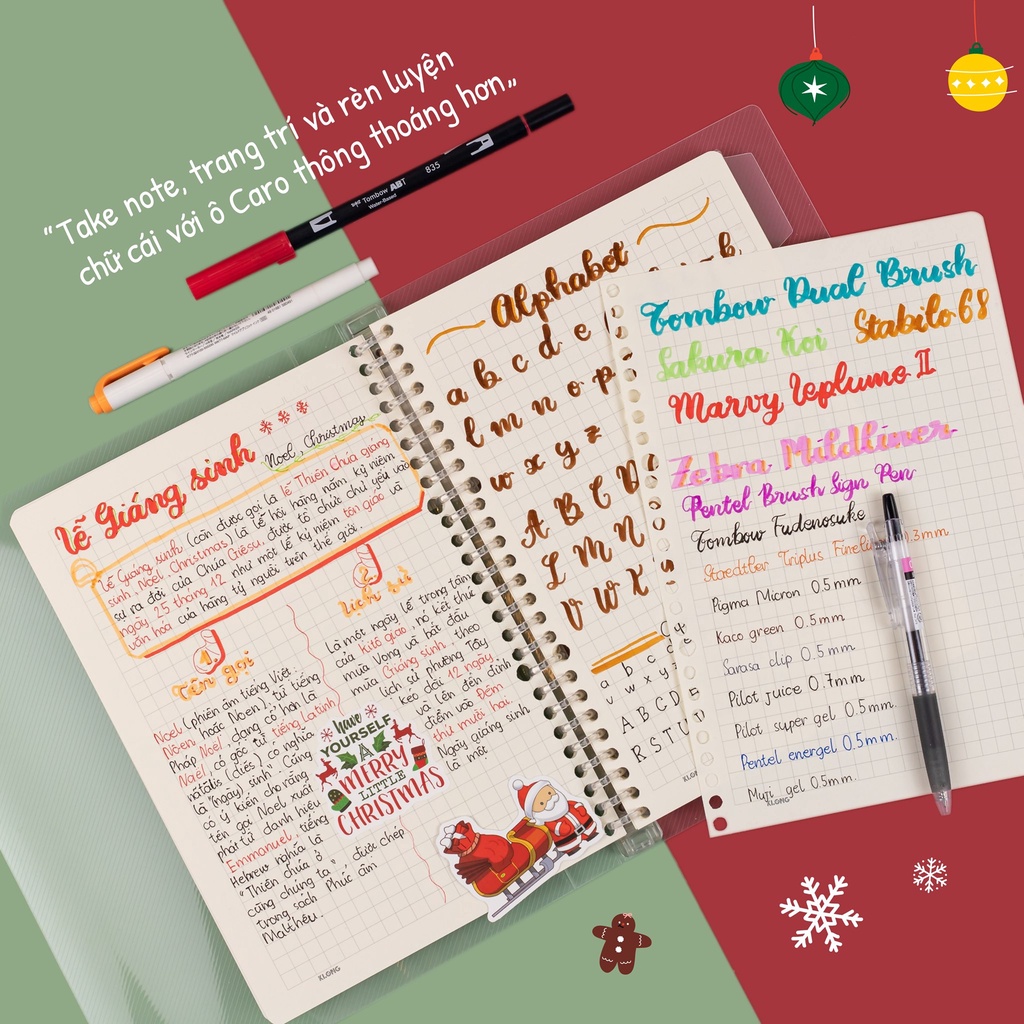 “Take note, trang trí và rèn luyện
chữ cái với ô Caro thông thoáng hơn„
Tombow ABT
Water-Based
835
Lễ Giáng sinh
Noel, Christmas
Lễ Giáng sinh (còn được gọi là lễ Thiên Chúa giáng
sinh, Noel, Christmas) là lễ hội hàng năm kỷ niệm
sự ra đời của Chúa Giêsu, được tổ chức chủ yếu vào
ngày 25 tháng 12 như một lễ kỷ niệm tôn giáo và
văn hoá của hàng tỷ người trên thế giới.
1.
Tên gọi
Noel (phiên âm tiếng Việt:
Nôen hoặc Noen), từ tiếng
Pháp Noël, dạng cổ hơn là
Naël, có gốc từ tiếng latinh
natālis (diēs) có nghĩa
là "(ngày) sinh". Cũng
có ý kiến cho rằng
tên gọi Noel xuất
phát từ danh hiệu
Emmanuel, tiếng
Hebrew nghĩa là
"Thiên chúa ở
cùng chúng ta" được chép
trong sách Phúc âm
Matthêu.
2.
lịch sử
Là một ngày lễ trọng tâm
của Kitô giáo, nó kết thúc
mùa Vọng và bắt đầu
mùa Giáng sinh theo
lịch sử phương Tây
kéo dài 12 ngày
và lên đến đỉnh
điểm vào Đêm
thứ mười hai.
Ngày giáng sinh
là một
have
YOURSELF
A
MERRY
LITTLE
CHRISTMAS
KLONG
Alphabet
a b c d e
l m n o p
w x y z
A B C D
L M N
V W X
a b c d
w x y z
A B C D E
R S T U
KLONG
Tombow Dual Brush
Sakura Koi Stabilo 68
Marvy Leplume II
Zebra Mildliner
Pentel Brush Sign Pen
Tombow Fudenosuke
Staedtler Triplus 0.3mm
Pigma Micron 0.5mm
Kaco green 0.5mm
Sarasa clip 0.5mm
Pilot juice 0.7mm
Pilot super gel 0.5mm.
Pentel energel 0.5mm.
Muji gel 0.5mm.
KLONG